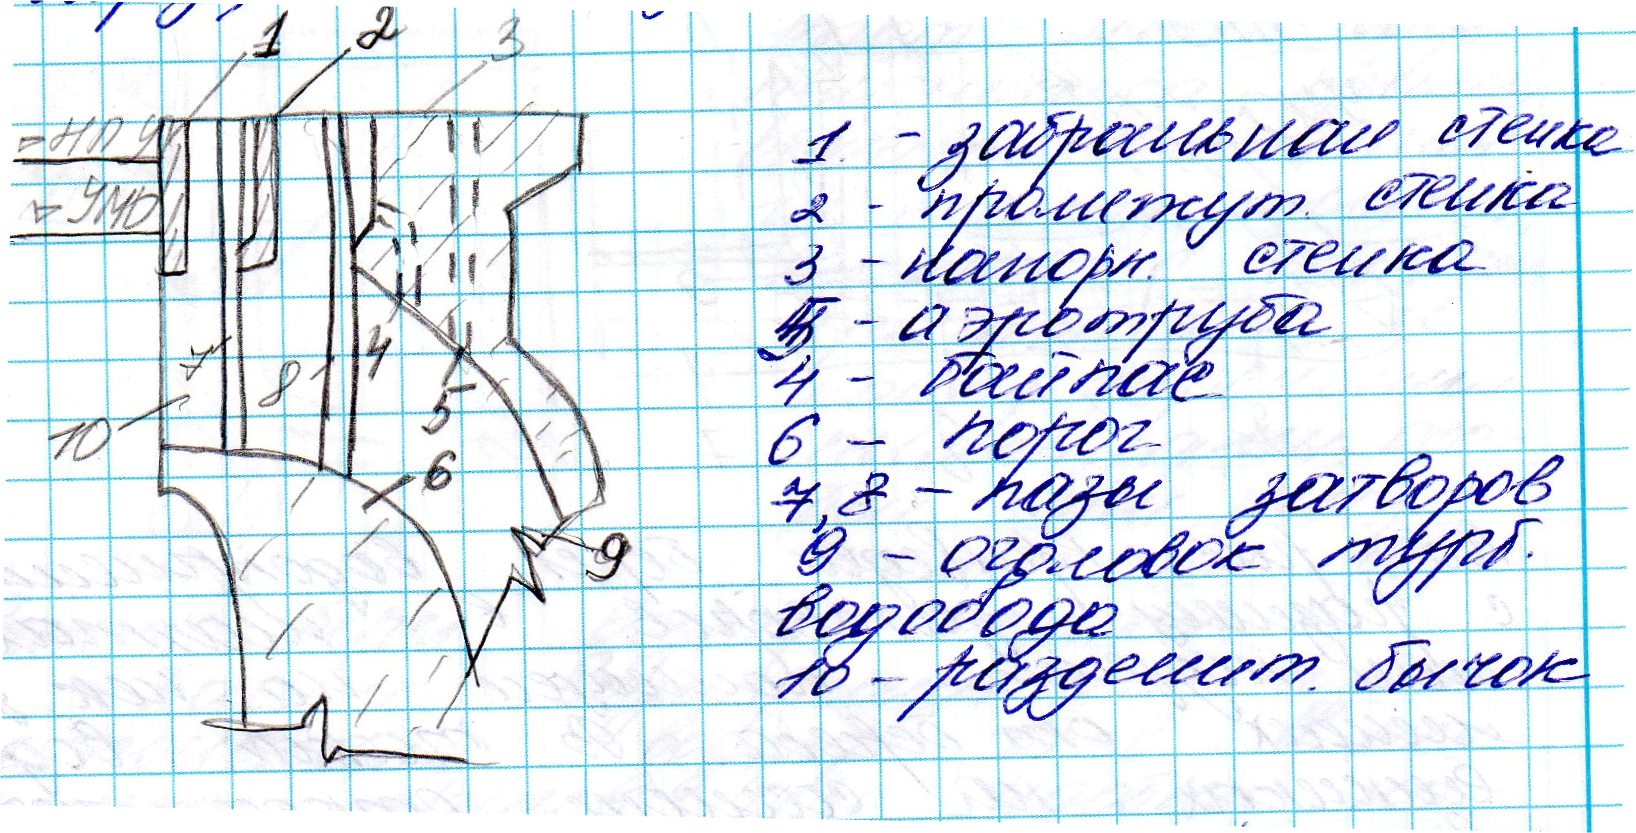 1 2 3
НПУ
УМО
7 8 4
5
10
6
9
1 - забральная стенка
2 - промежут. стенка
3 - напорн. стенка
5 - аэротруба
4 - байпас
6 - порог
7,8 - пазы затворов
9 - оголовок турб.
водовода
10 - разделит. бычок